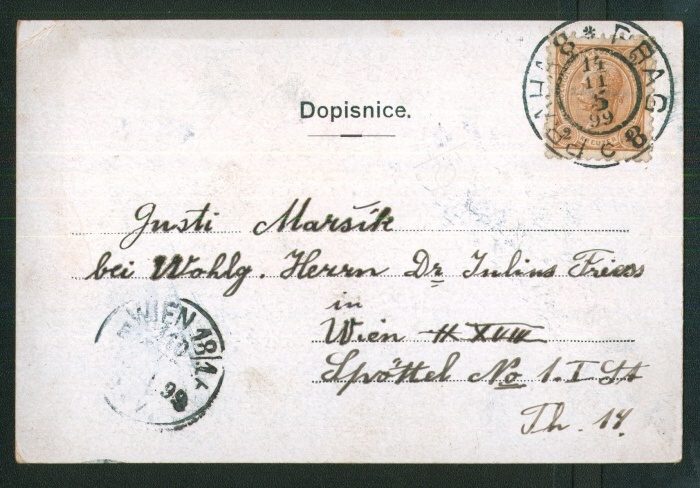 Dopisnice.
PRAHA 8 * PRAG 8 c
14
11
99
Gusti Maršik
bei Wohlg. Herrn Dr Julius Friess
in
Wien
Spöttel No 1. I St
Th. 14.
WIEN 18/1
99